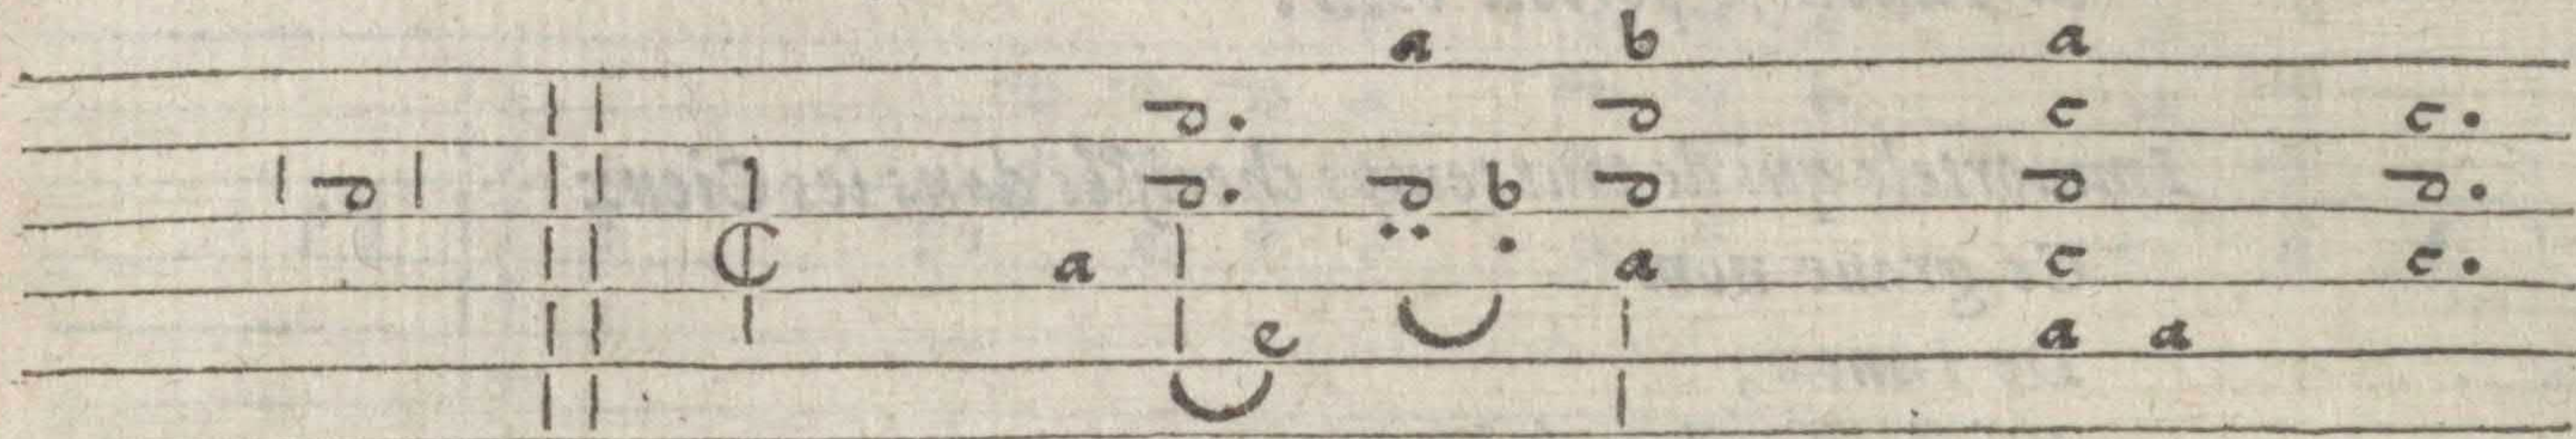 a b a
d. d c c.
d d. d b d d d.
¢ a a c c.
e a a